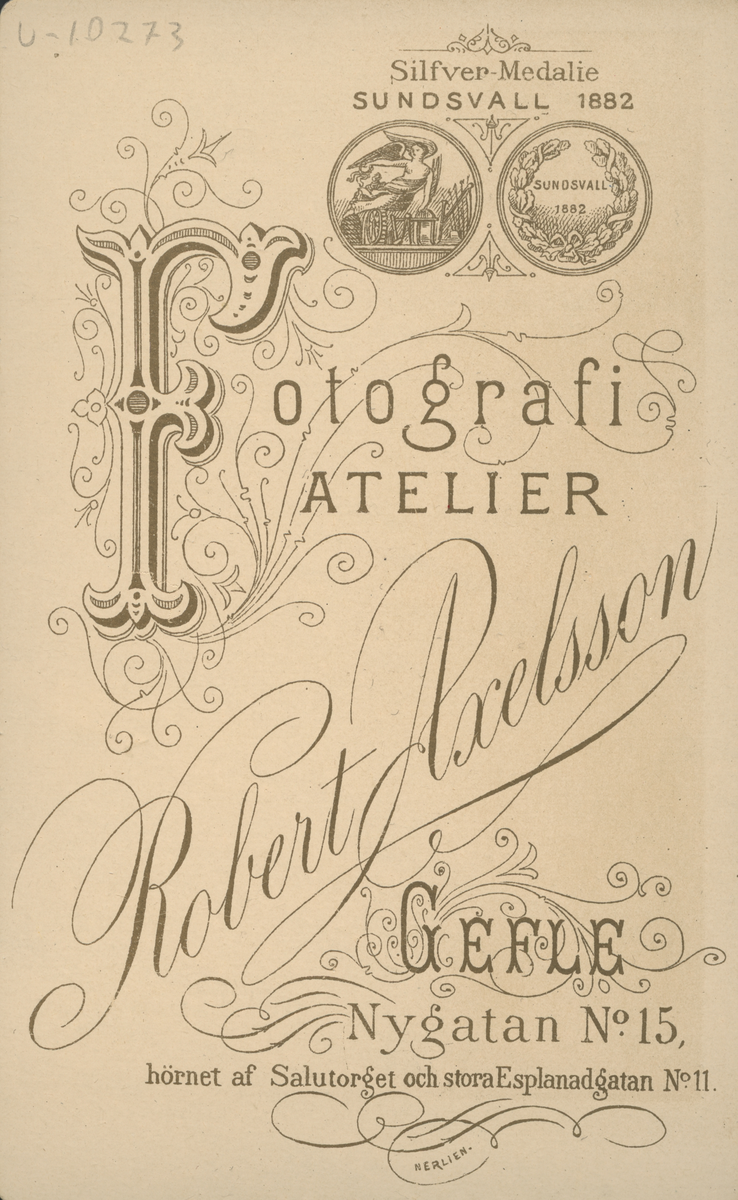 U-10273
Silfver-Medalie
SUNDSVALL 1882
SUNDSVALL
1882
Fotografi
ATELIER
Robert Axelsson
GEFLE
Nygatan No 15,
hörnet af Salutorget och stora Esplanadgatan No 11.
NERLIEN.